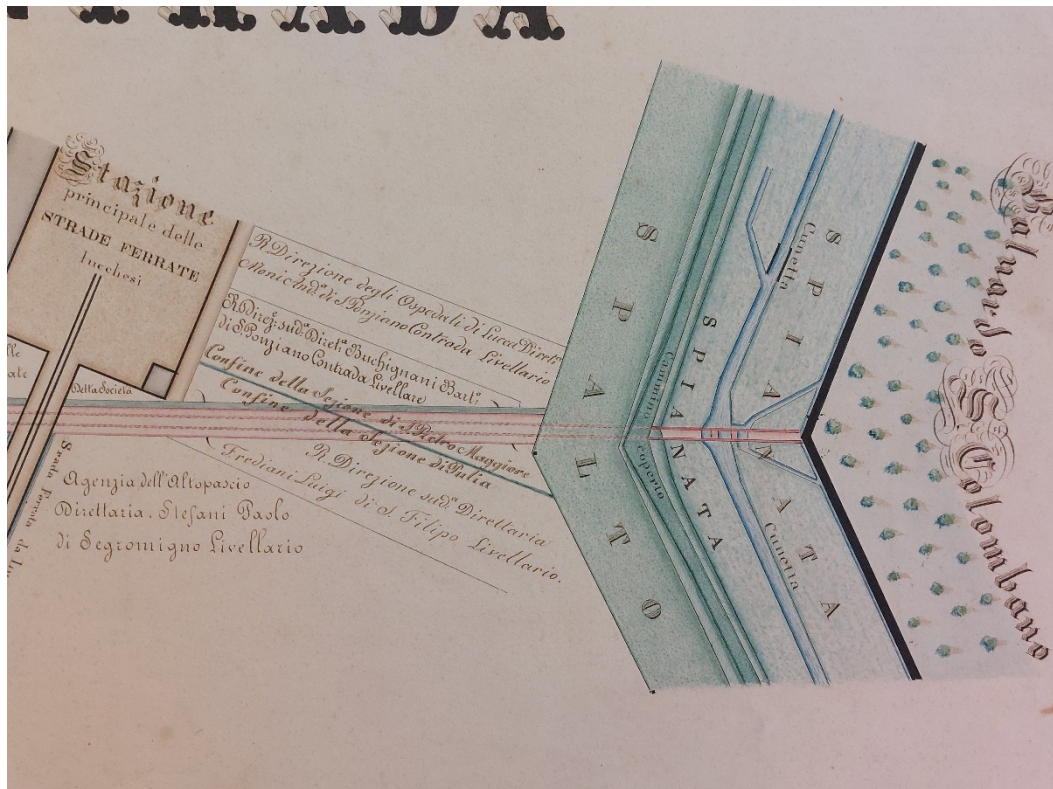 STRADA
Stazione
principale delle
STRADE FERRATE
lucchesi
Della Società
Strada Ferrata da
R. Direzione degli Ospedali di Lucca Dirett.ª
Monic And.ª di S. Ponziano Contrada Livellario
R. Direz. sud.ª Dirett.ª Buchignani Bart.º
di S. Ponziano Contrada Livellare
Confine della Sezione di S. Pietro Maggiore
Confine della Sezione di Pulia
R. Direzione sud.ª Direttaria
Frediani Luigi di S. Filipo Livellario.
Agenzia dell'Altopascio
Direttaria. Stefani Paolo
di Segromigno Livellario
SPALTO
Cammino coperto
SPIANATA
Cunetta
SPIANATA
Cunetta
Baluardo S. Colombano